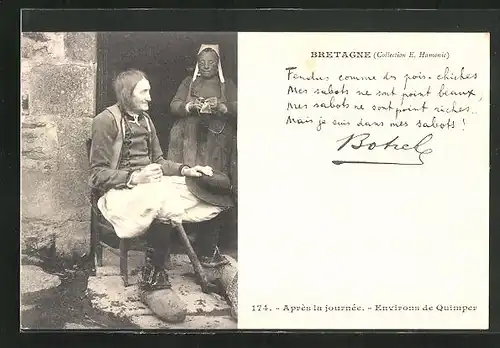 BRETAGNE (Collection E. Hamonic)
Fendus comme des pois-chiches
Mes sabots ne sont point beaux,
Mes sabots ne sont point riches,
Mais je suis dans mes sabots !
Botrel
174. - Après la journée. - Environs de Quimper